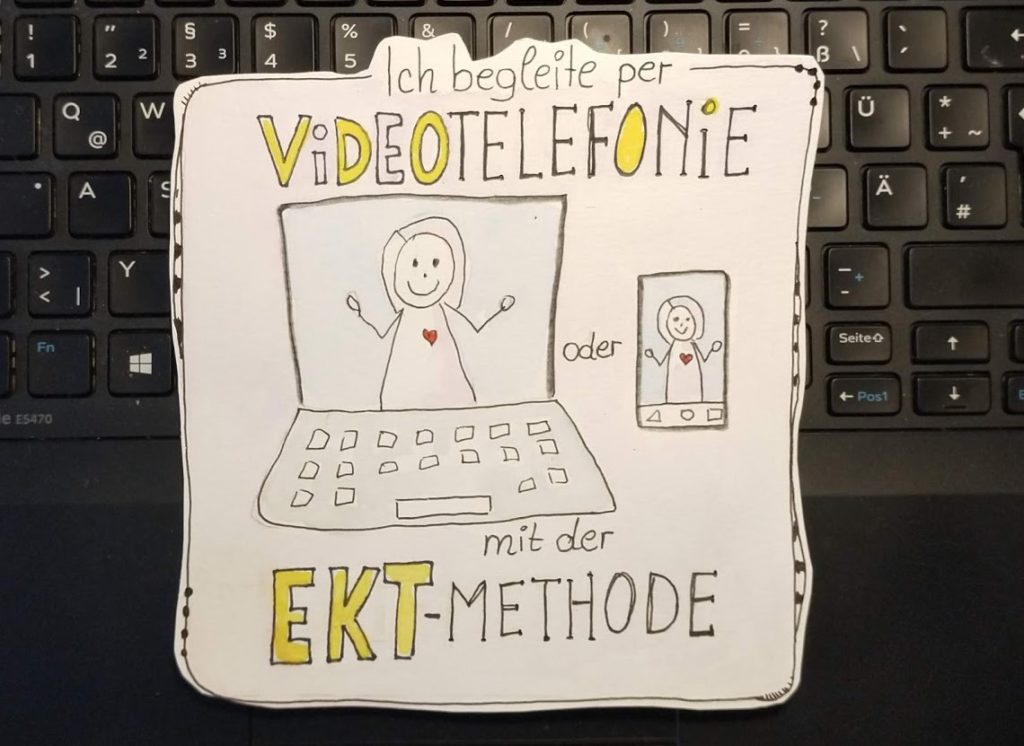 Ich begleite per
ViDEOTELEFONiE
oder
mit der
EKT-METHODE
! " § $ % & / ( ) = ? `
1 2 ² 3 ³ 4 5 ß \ ´
Q @ W Ü * + ~
A S Ä ' #
> < | Y - _
Fn Seite⇧ ↑
E5470 ← Pos1 ↓